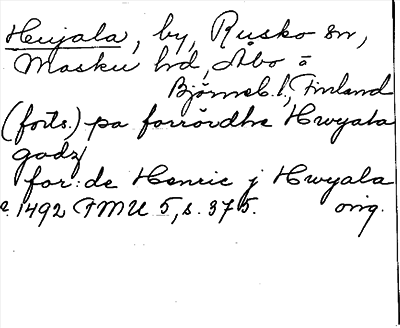 Hujala, by, Rusko sn,
Masku hd, Åbo o
Björneb. l., Finland
(forts.) pa forrördhe Hwyala
godz
for: de Henric j Hwyala
1492 FMU 5, s. 375. orig.